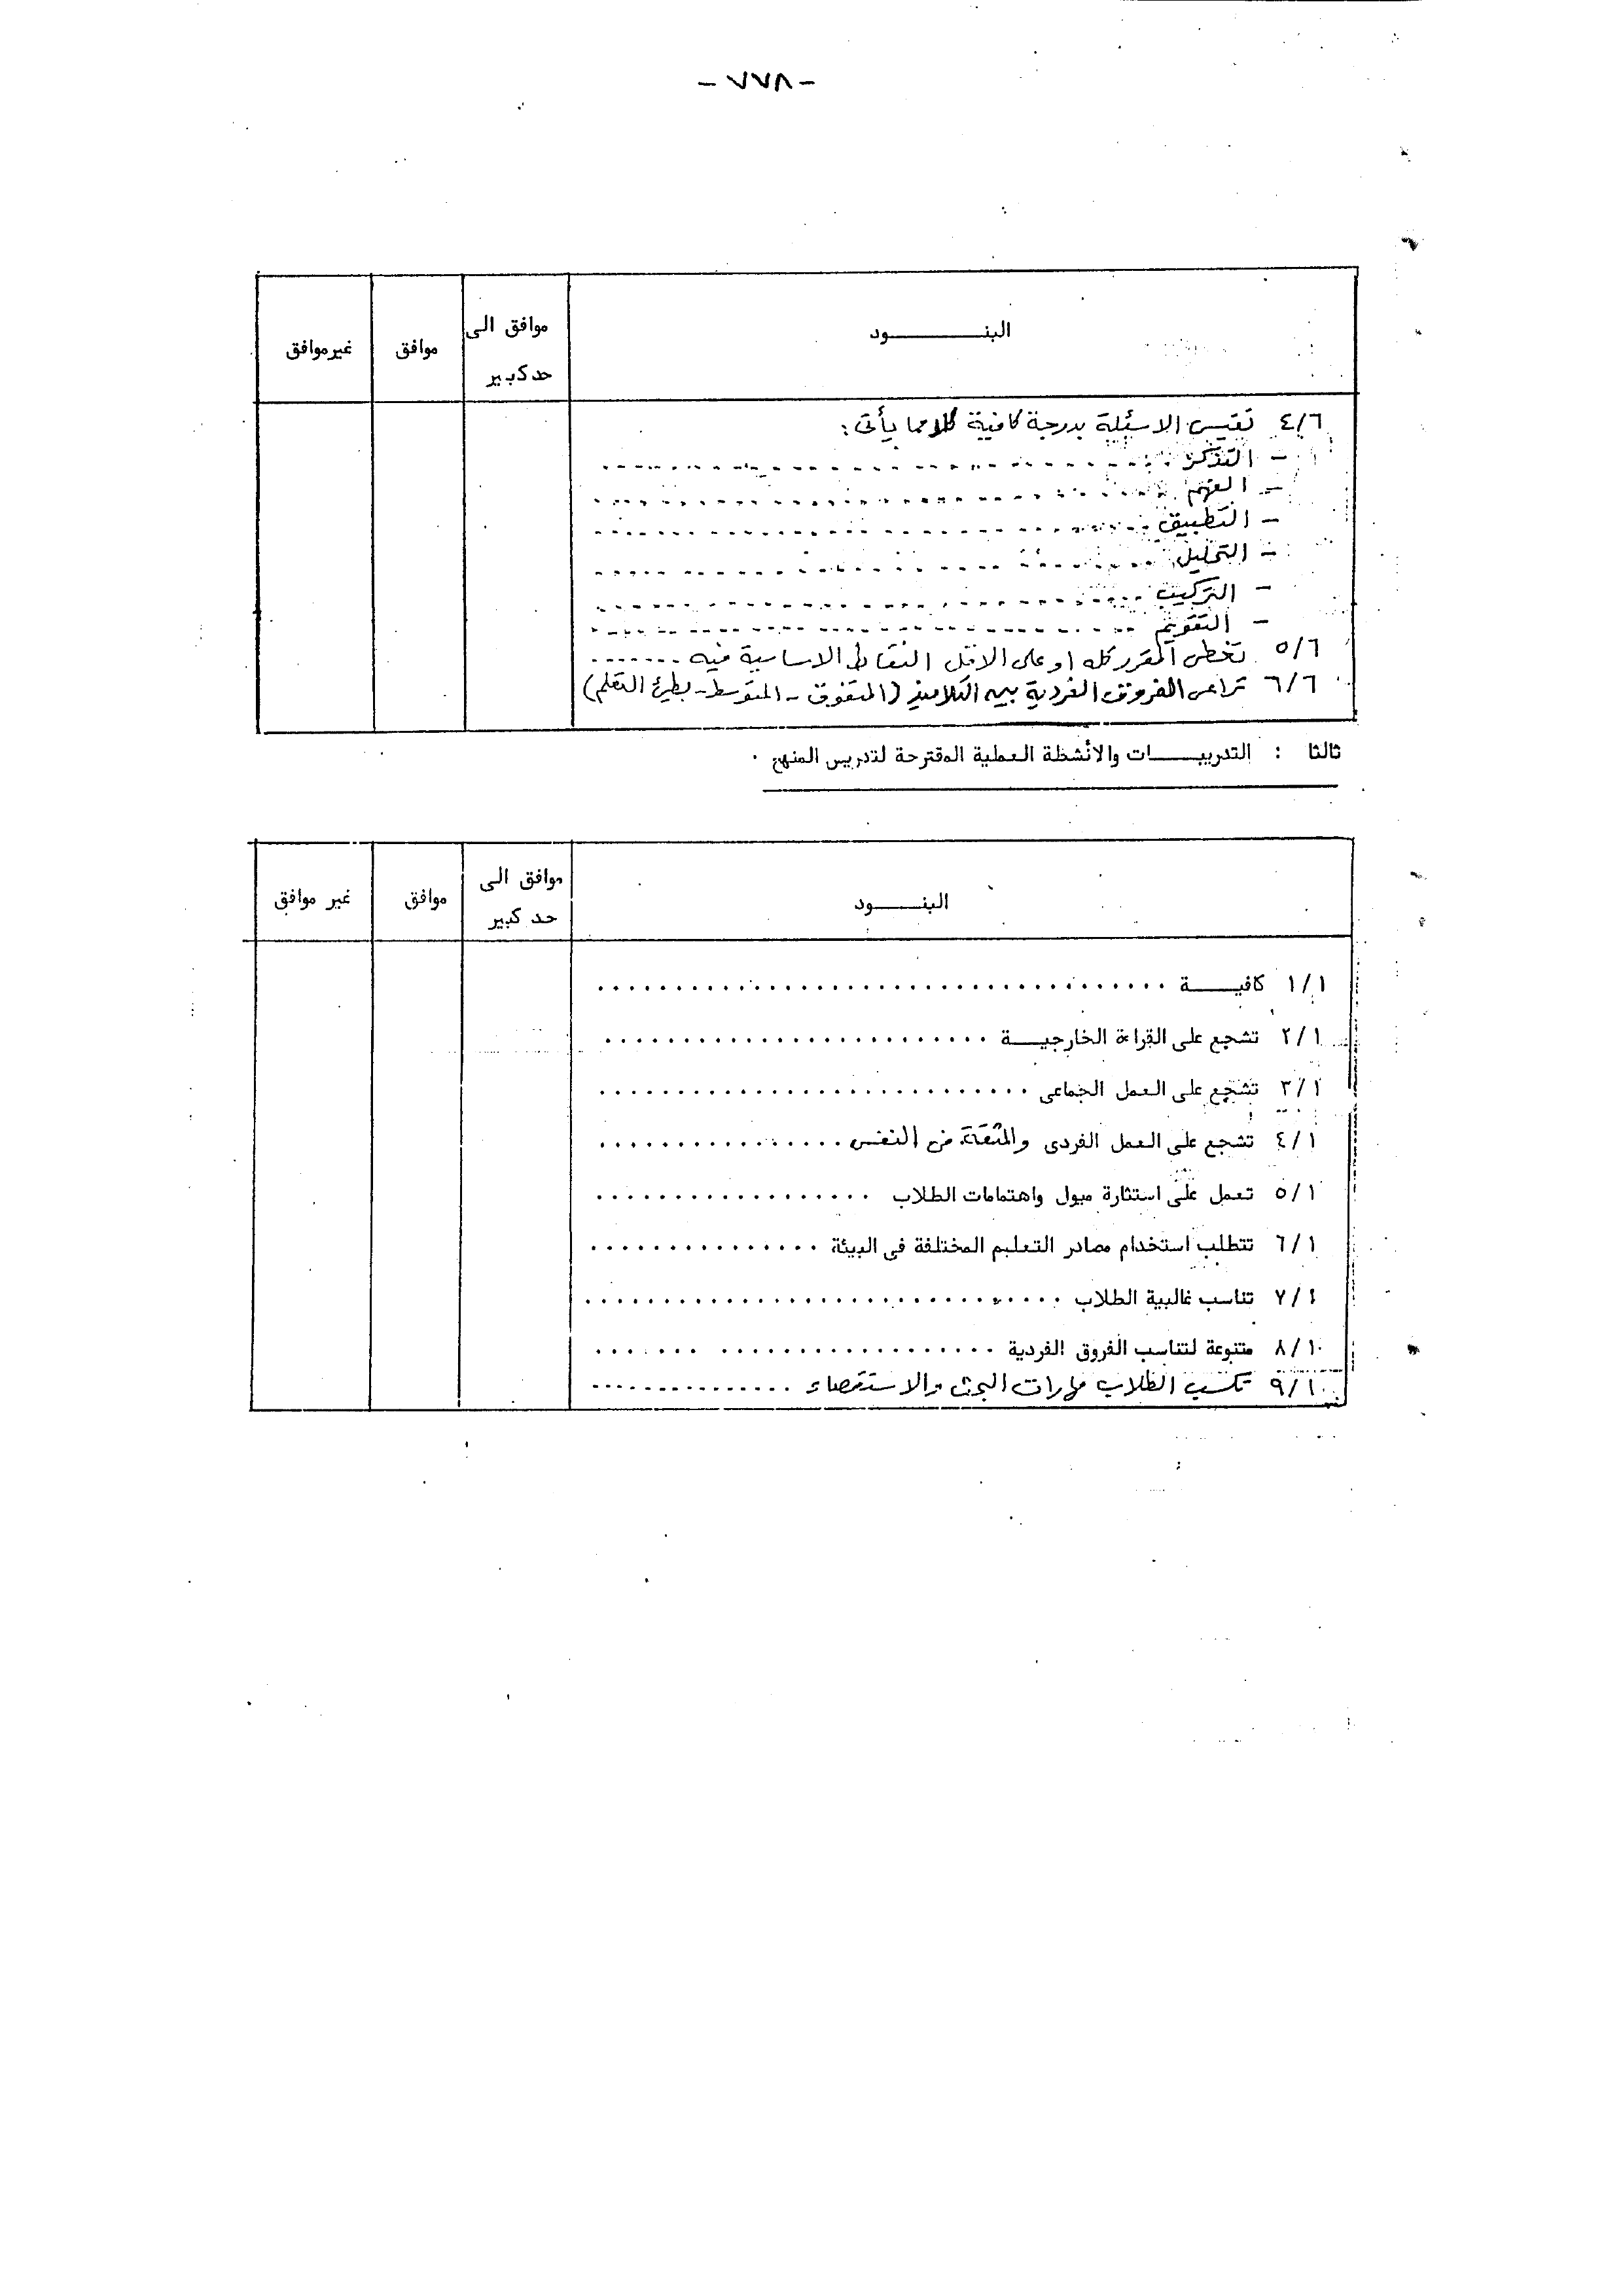 - ٧٧٨ -
البنـــــــود
موافق الى حد كبير
موافق
غير موافق
٤/٦ تقيس الاسئلة بدرجة كافية كلا مما يأتى :
- التذكر
- الفهم
- التطبيق
- التحليل
- التركيب
- التقويم
٥/٦ تغطى المقرر كله او على الاقل النقاط الاساسية فيه
٦/٦ تراعى الفروق الفردية بين التلاميذ (المتفوق - المتوسط - بطئ التعلم)
ثالثا : التدريبـــات والأنشطة العملية المقترحة لتدريس المنهج .
البنـــــود
موافق الى حد كبير
موافق
غير موافق
١/١ كافيـــة
٢/١ تشجع على القراءة الخارجيـــة
٣/١ تشجع على العمل الجماعى
٤/١ تشجع على العمل الفردى والثقة فى النفس
٥/١ تعمل على استثارة ميول واهتمامات الطلاب
٦/١ تتطلب استخدام مصادر التعليم المختلفة فى البيئة
٧/١ تناسب غالبية الطلاب
٨/١ متنوعة لتناسب الفروق الفردية
٩/١ تكسب الطلاب مهارات البحث والاستقصاء